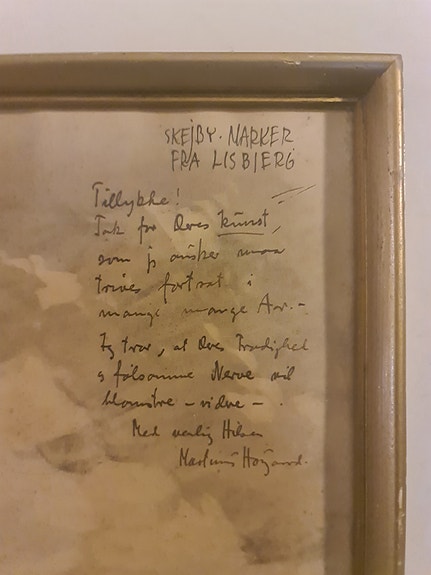 SKEJBY. MARKER
FRA LISBJERG
Tillykke!
Tak for Deres kunst,
som jeg ønsker maa
trives fortsat i
mange mange Aar. –
Jeg tror, at Deres
& følsomme Nerve vil
blomstre – videre – .
Med venlig Hilsen